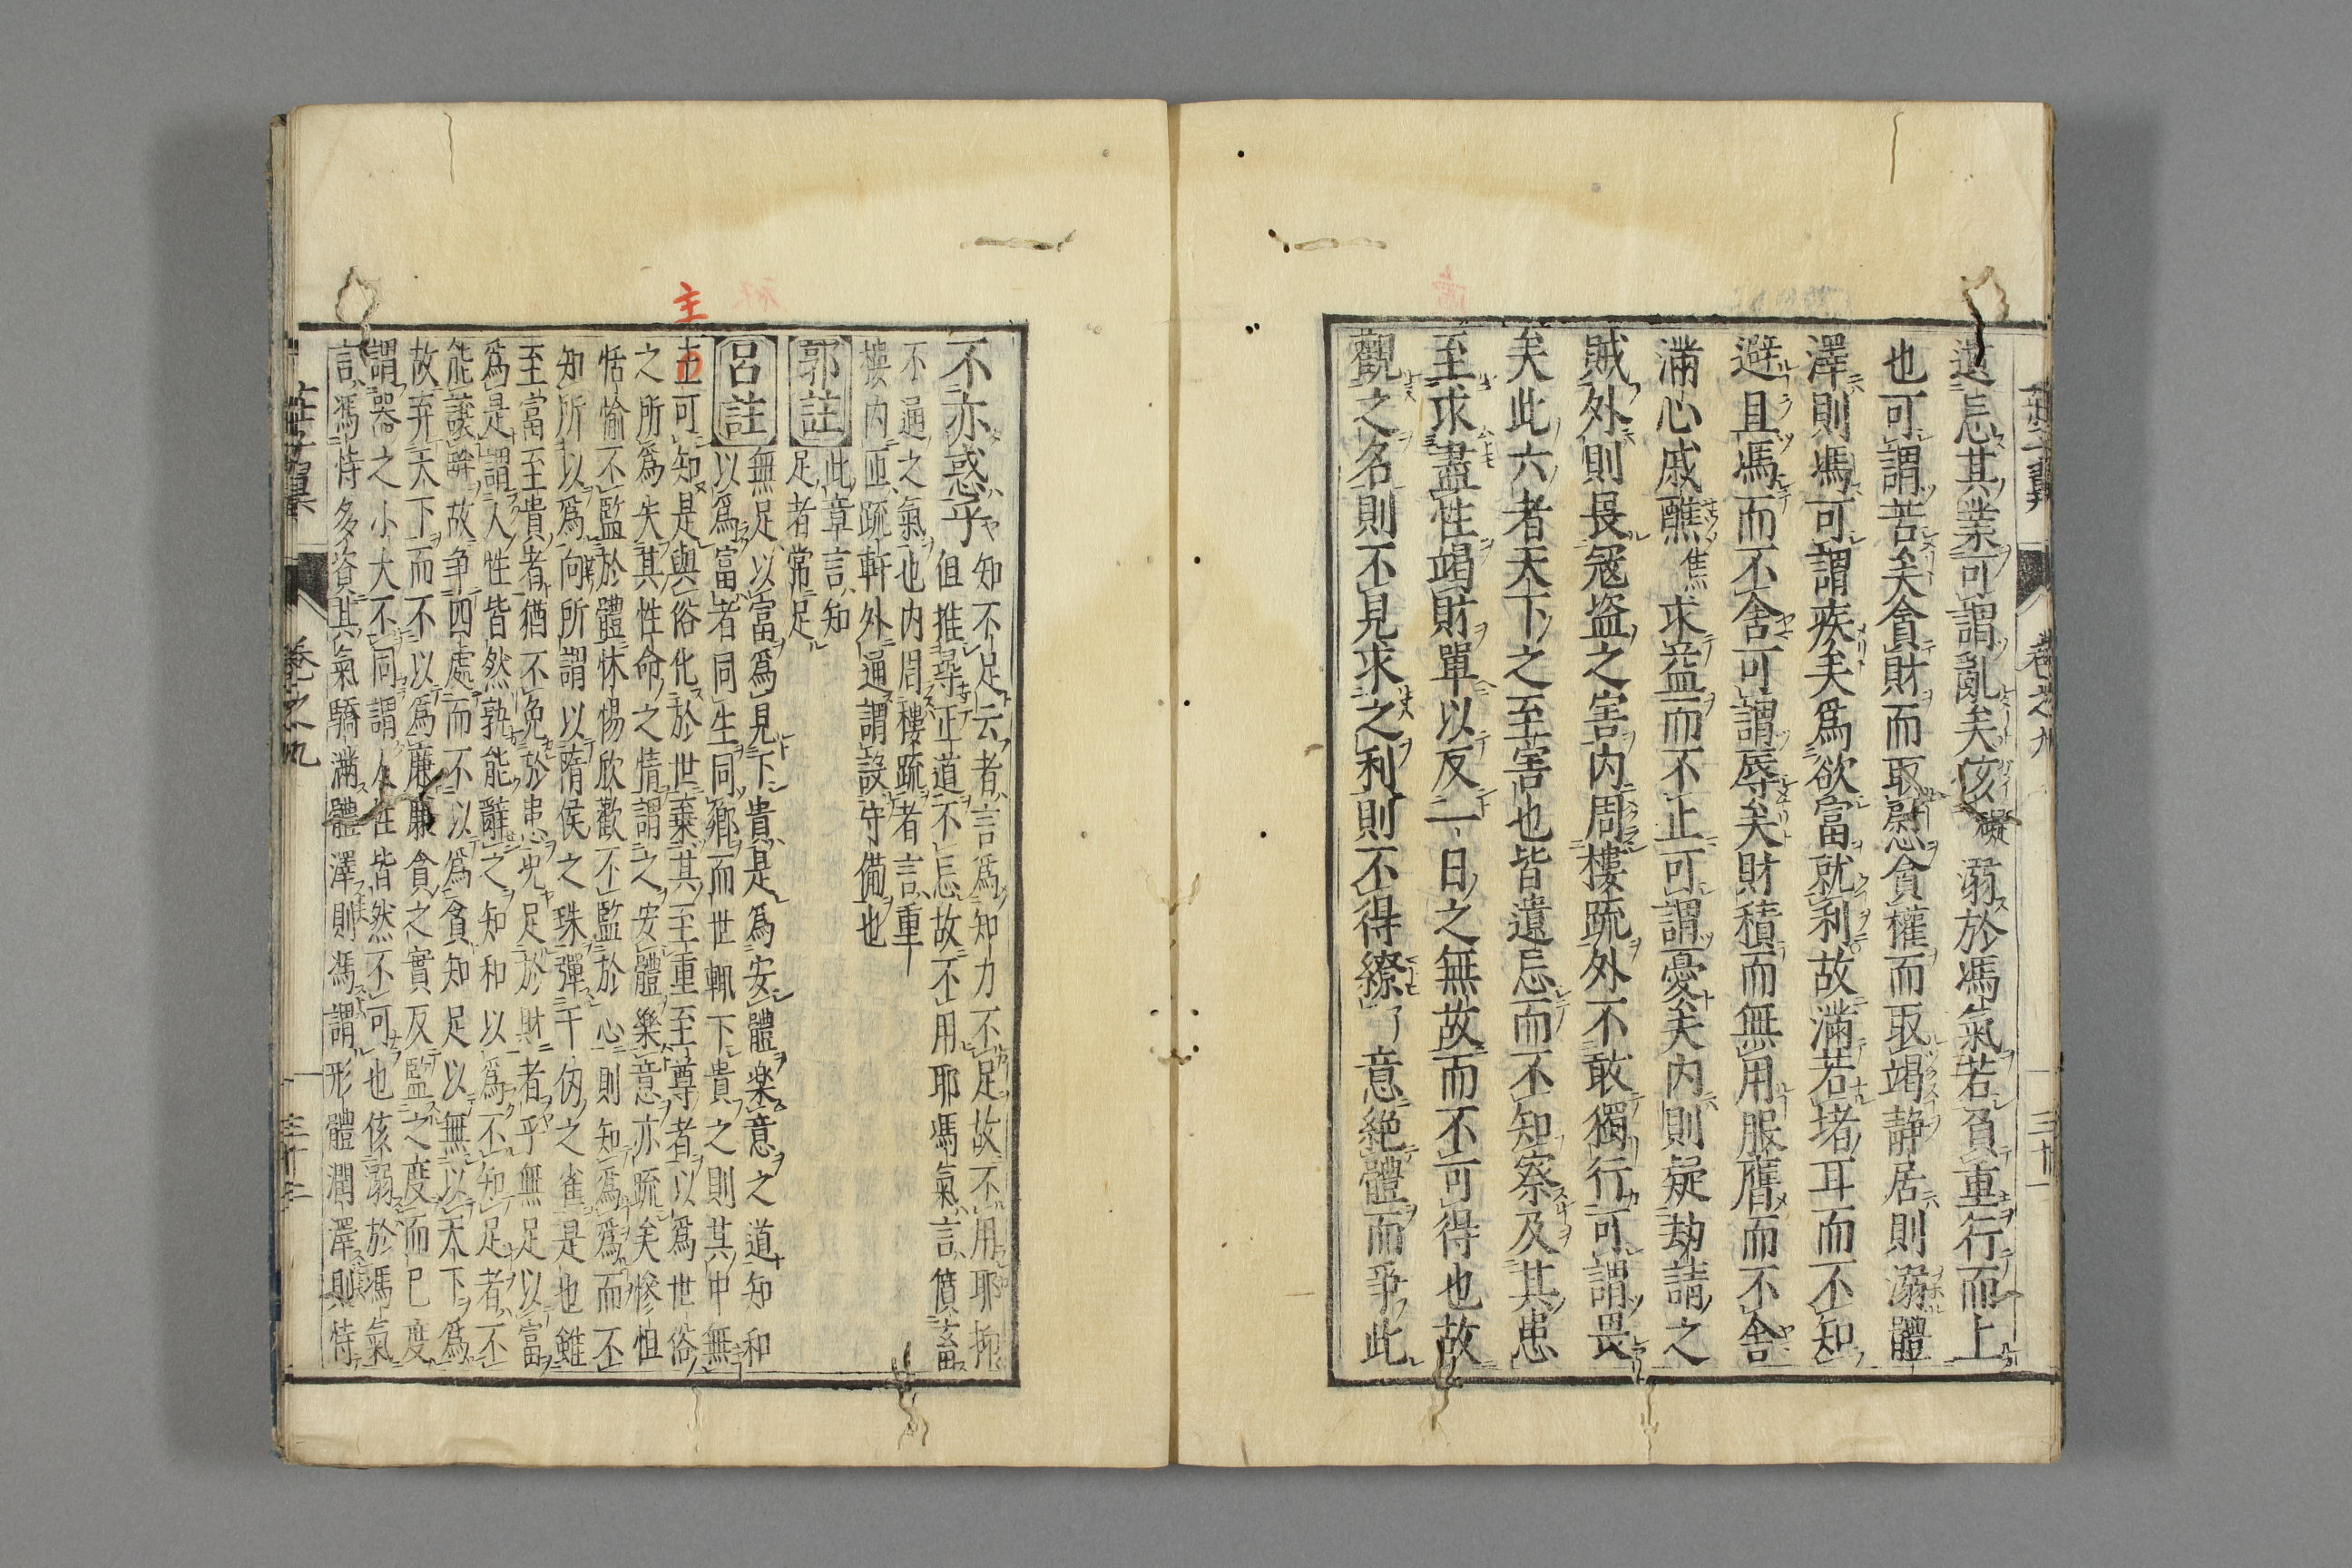 莊子翼　卷之九　三十一
遺忘其業可謂亂矣侅礙溺於馮氣若負重行而上
也可謂苦矣貪財而取慰貪權而取竭靜居則溺體
澤則馮可謂疾矣爲欲富就利故滿若堵耳而不知
避且馮而不舍可謂辱矣財積而無用服膺而不舍
滿心戚醮焦求益而不止可謂憂矣内則疑刼請之
賊外則畏冦盗之害内周樓疏外不敢獨行可謂畏
矣此六者天下之至害也皆遺忘而不知察及其患
至求盡性竭財單以反一日之無故而不可得也故
觀之名則不見求之利則不得繚了意絶體而爭此
不亦惑乎
知不足云者言爲知力不足故不用耶抑
但推尋正道不忘故不用耶馮氣言憤畜
不通之氣也内周樓疏者言重
樓内匝疏軒外通謂設守備也
郭註
此章言知
足者常足
呂註
無足以富爲見下貴是爲安體樂意之道知和
以爲富者同生同鄉而世輒下貴之則其中無
主
正可知是與俗化於世棄其至重至尊者以爲世俗
之所爲失其性命之情謂之安體樂意亦疏矣慘怛
恬愉不監於體怵惕欣歡不監於心則知爲爲而不
知所以爲向所謂以隋侯之珠彈千仭之雀是也雖
至富至貴者猶不免於患况足於財者乎無足以富
爲是謂人性皆然孰能辭之知和以爲不知足者不
能讓辭故爭四處而不以爲貪知足以無以天下爲
故弃天下而不以爲廉廉貪之實反監之度而已度
謂器之小大不同謂人性皆然不可也侅溺於馮氣
言馮恃多資其氣驕滿體澤則馮謂形體潤澤則恃
莊子翼　卷之九